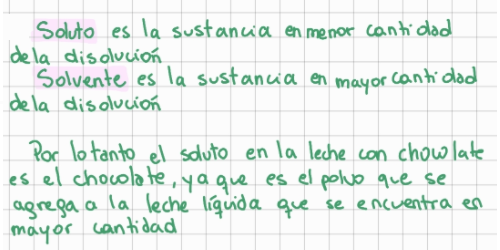 Soluto es la sustancia en menor cantidad
dela disolución
Solvente es la sustancia en mayor cantidad
dela disolución
Por lo tanto el soluto en la leche con chocolate
es el chocolate, ya que es el polvo que se
agrega a la leche líquida que se encuentra en
mayor cantidad